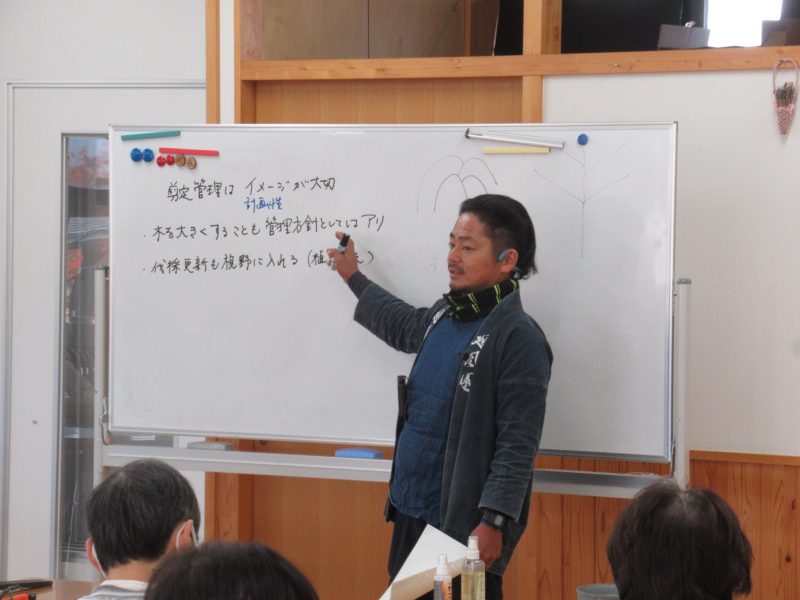 剪定管理は イメージが大切
計画性
・木を大きくすることも管理方針としてはアリ
・伐採更新も視野に入れる(植